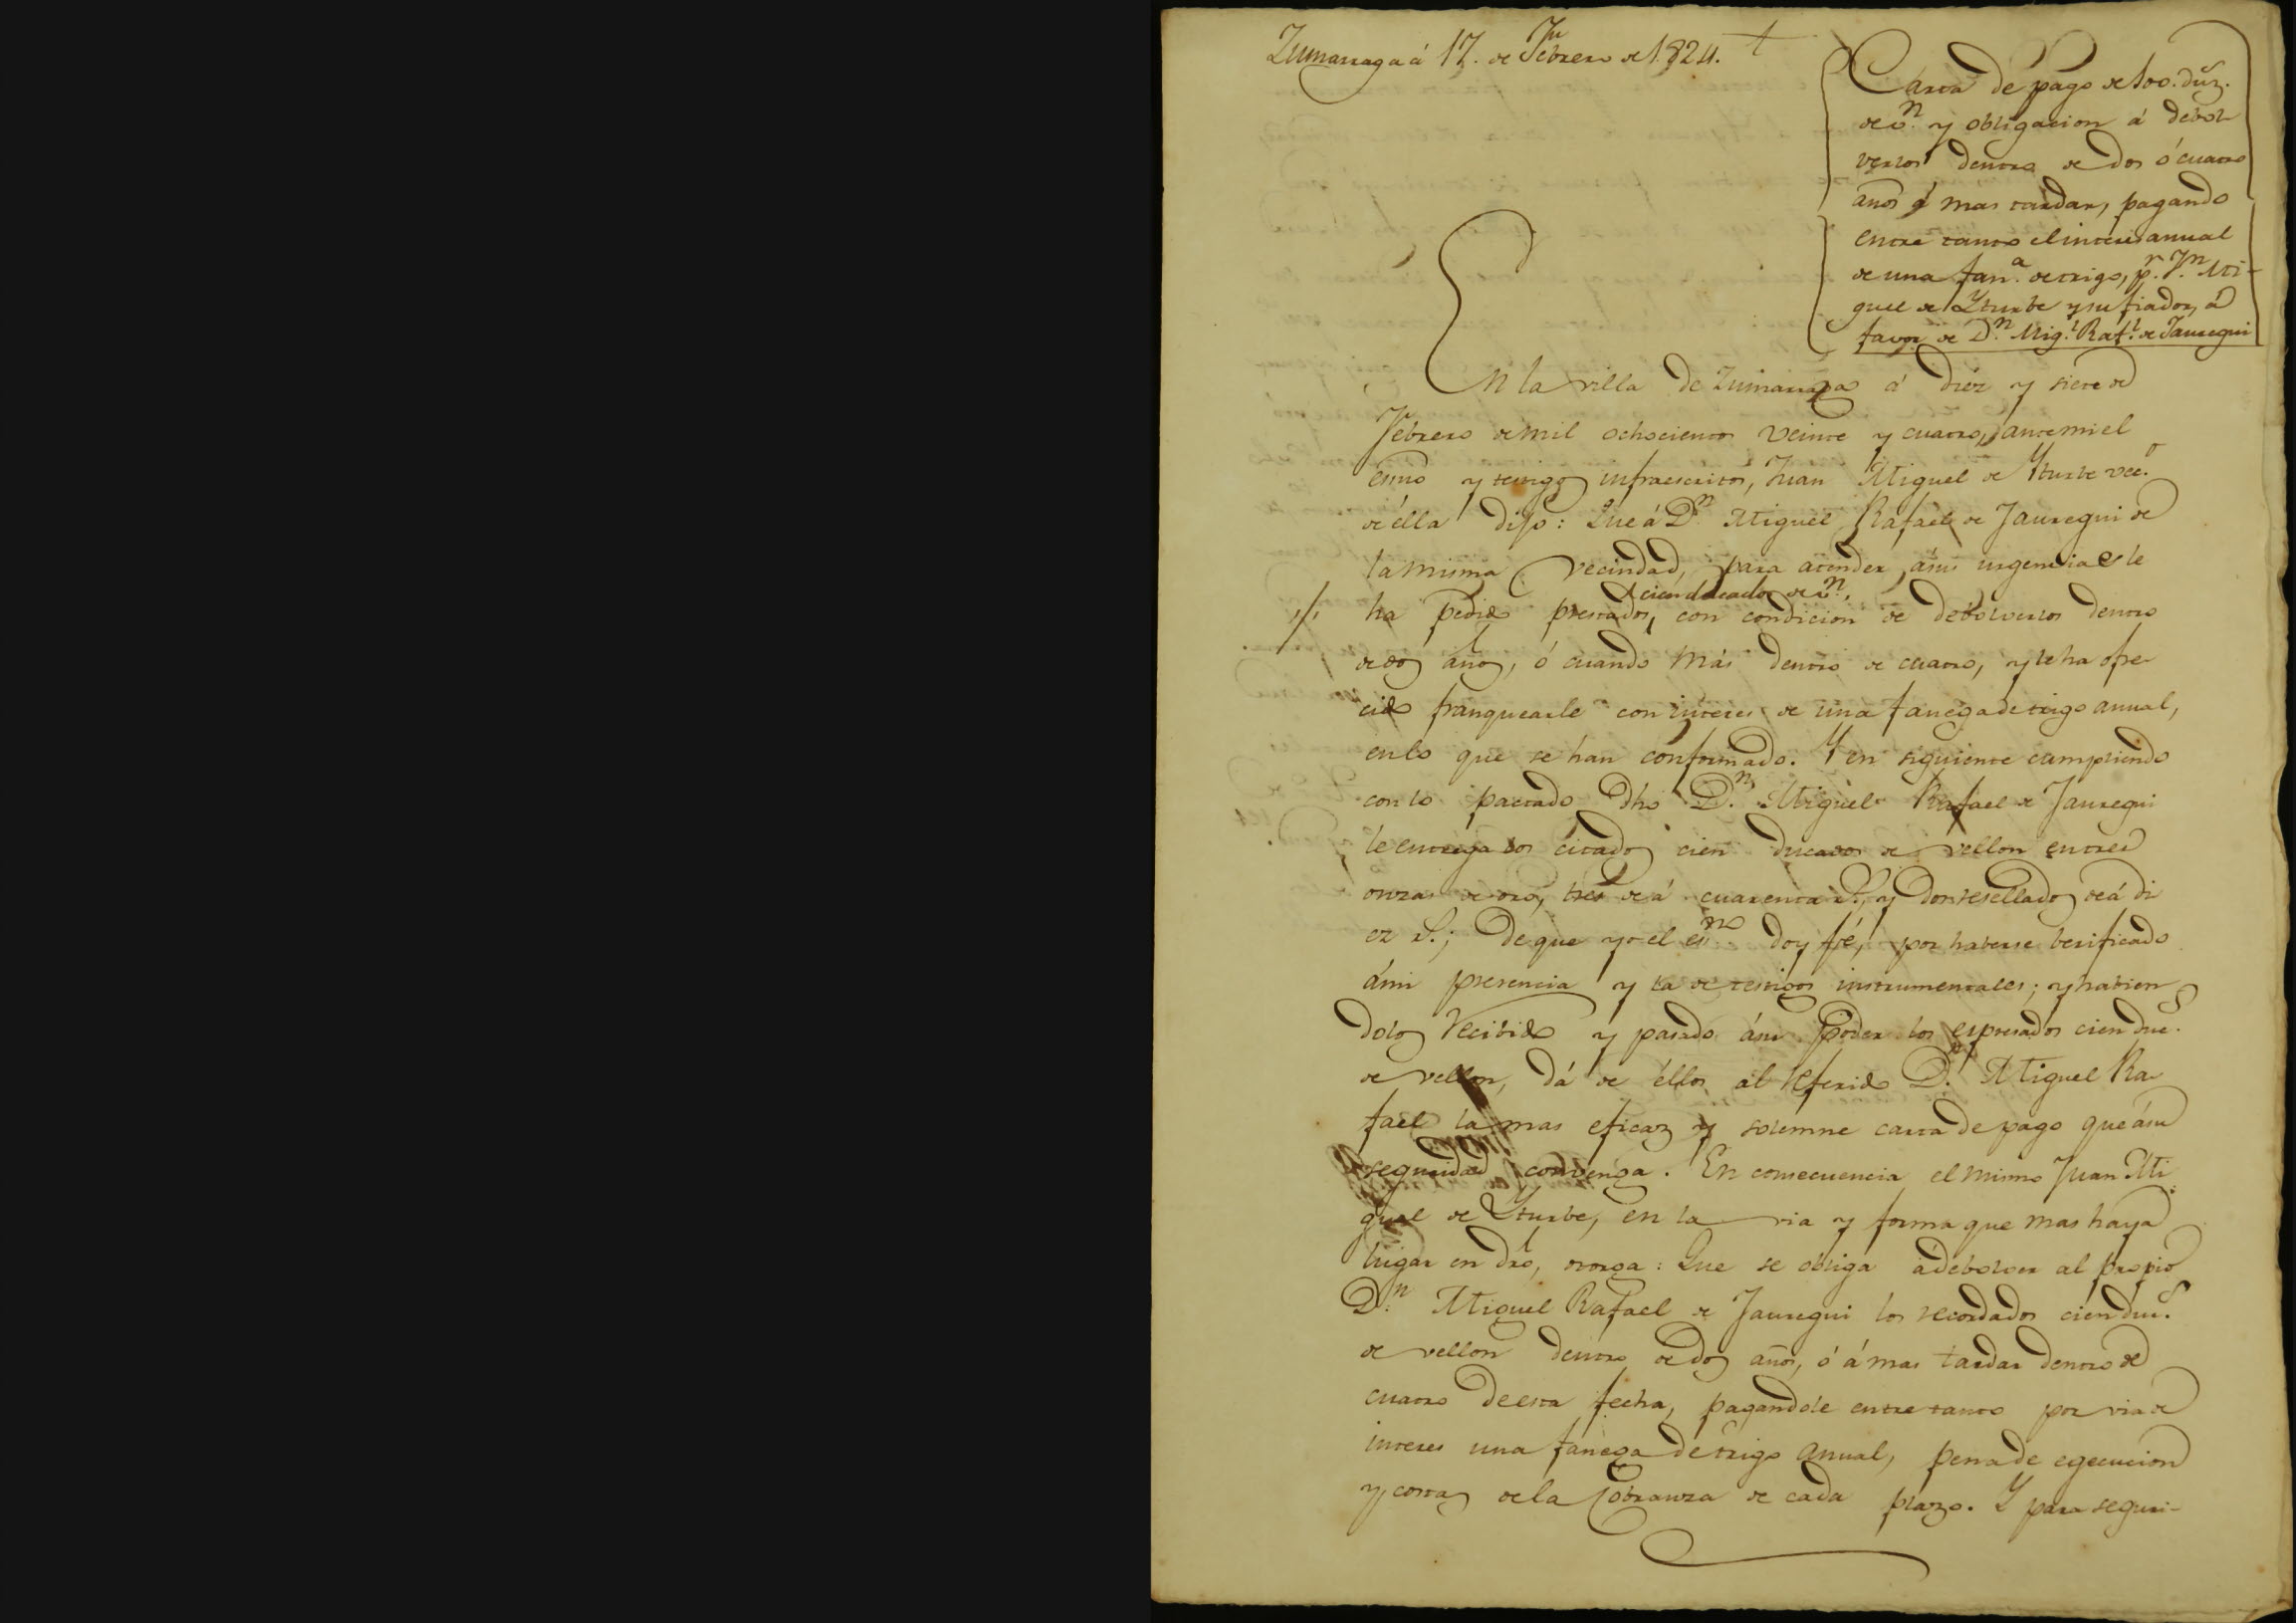 Zumarraga á 17. de Febrero de 1.824. †
Carta de pago de 100. duz.
de v.n y obligacion á debol
verlos dentro de dos ó cuatro
años á mas tardar, pagando
entre tanto el interes anual
de una fan.a de trigo, p.r J.n Mi-
guel de Yturbe y su fiador, á
favor de D.n Mig.l Raf.l de Jauregui
En la villa de Zumarraga á diez y siete de
Febrero de mil ochocientos veinte y cuatro, ante mi el
esnõ y testigos infraescritos, Juan Miguel de Yturbe vec.o
de élla dijo: Que á D.n Miguel Rafael de Jauregui de
la misma vecindad, para atender á sus urgencias le
cien ducados de v.n,
ha pedido prestados, con condicion de debolverlos dentro
de dos años, ó cuando más dentro de cuatro, y le ha ofre
cido franquearle con interes de una fanega de trigo anual,
en lo que se han conformado. Y en siguiente cumpliendo
con lo pactado dho D.n Miguel Rafael de Jauregui
le entrega los citados cien ducados de vellon en tres
onzas de oro, tres de á cuarenta r.s, y dos resellados de á di
ez r.s; De que yo el esno doy fé, por haberse berificado
á mi presencia y la de testigos instrumentales; y habien
dolos recibido y pasado á su poder los espresados cien duc.s
de vellon, dá de éllos al referido D.n Miguel Ra
fael la mas eficaz y solemne carta de pago que á su
seguridad convenga. En consecuencia el mismo Juan Mi
guel de Yturbe, en la via y forma que mas haya
lugar en dro, otorga: Que se obliga á debolver al propio
D.n Miguel Rafael de Jauregui los recordados cien duc.s
de vellon dentro de dos años, ó á mas tardar dentro de
cuatro de esta fecha, pagandole entre tanto por via de
interes una fanega de trigo anual, pena de egecucion
y costas de la cobranza de cada plazo. Y para seguri-